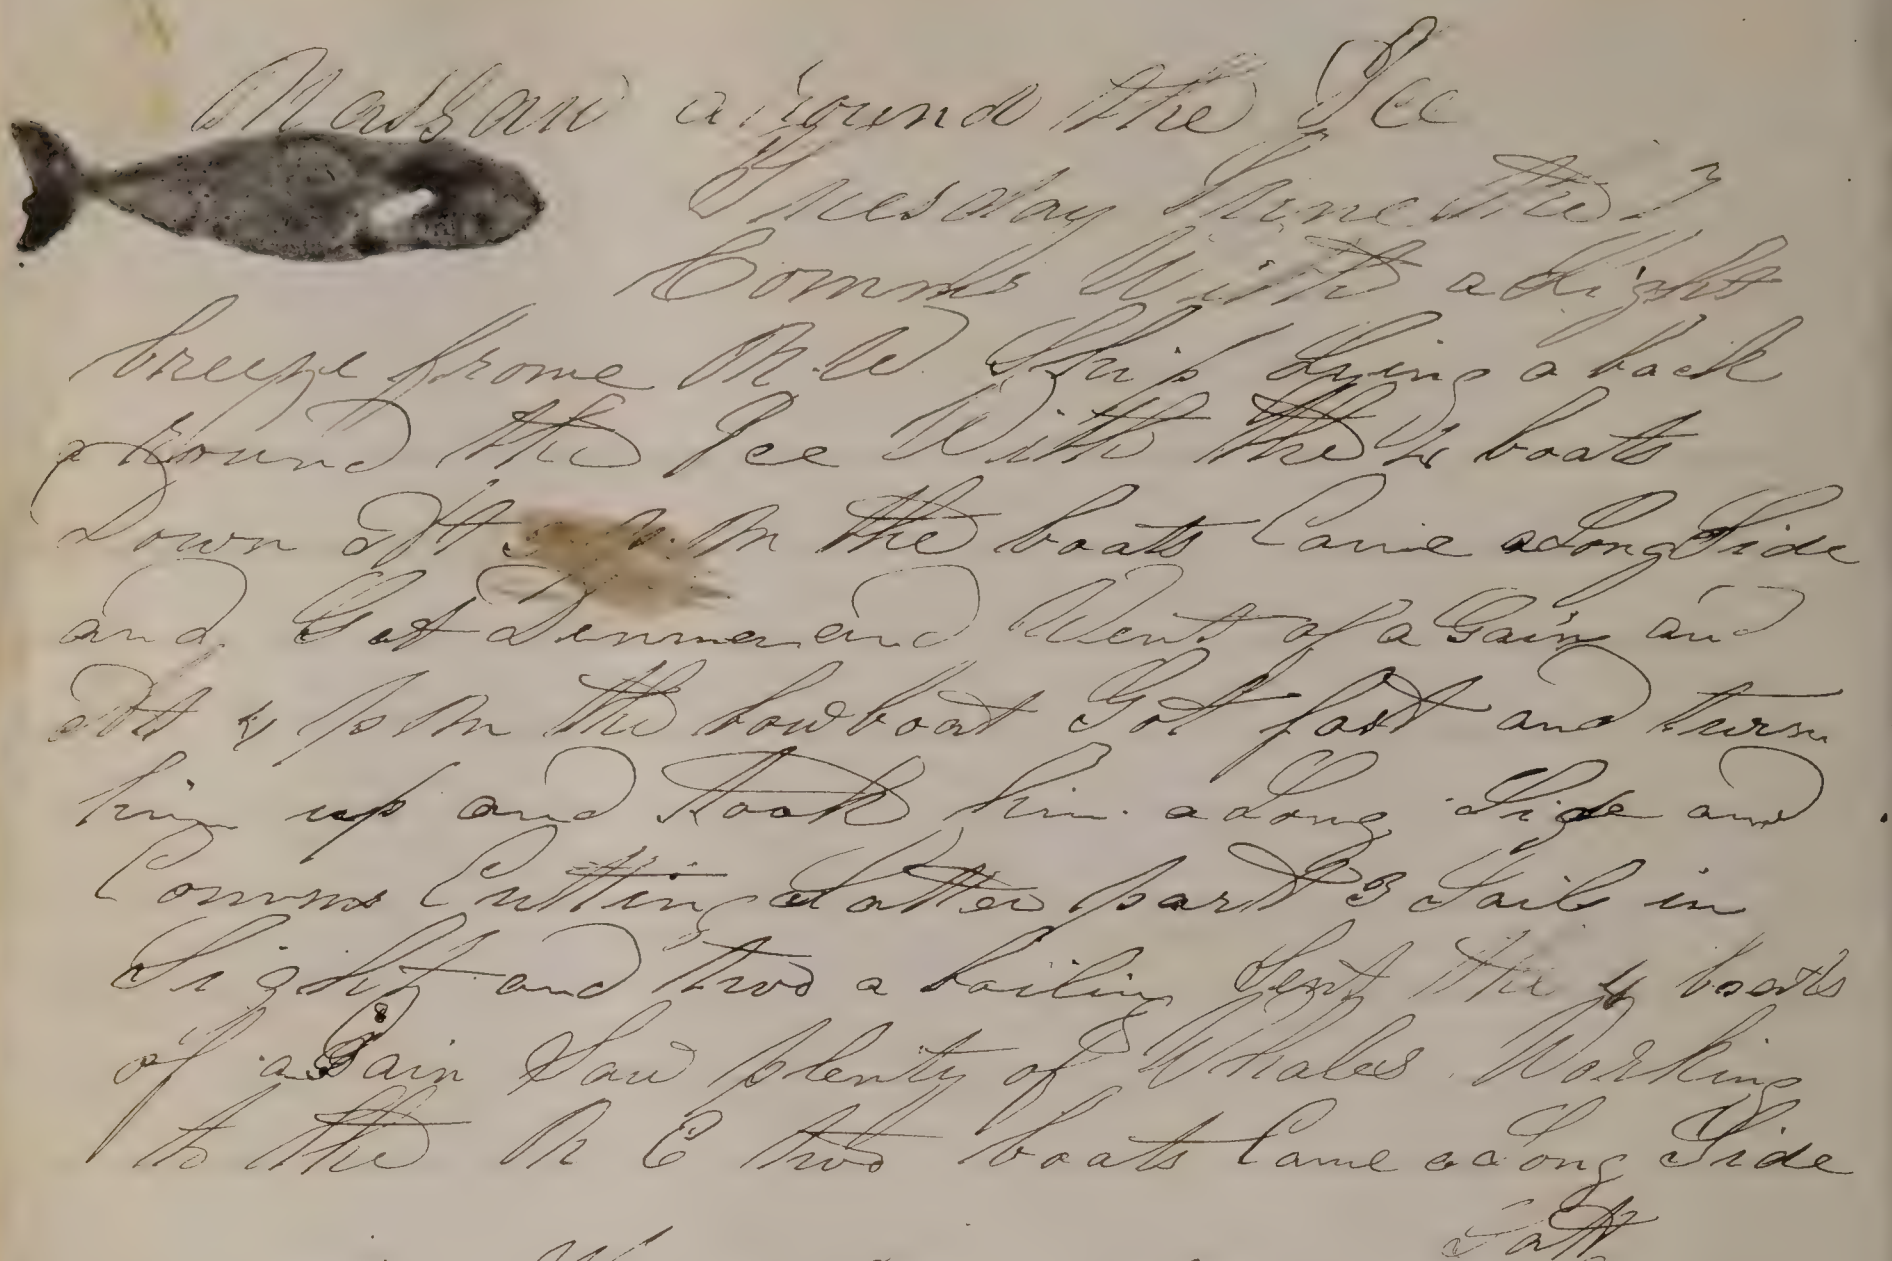 Nassau around the Ice
Tuesday June the 7
Comms With a Light
breeze frome N.W. Ship Lying aback
around the Ice With the 4 boats
Down Att M the boats Came aLong Side
and Got Dinner and Went of a Gain and
Att 4 P M the bow boat Got fast and turn
him up and took him aLong Side and
Comms Cutting Latter part 3 Sail in
Sight and two a boiling Sent the 4 boats
of aGain Saw plenty of Whales Working
to the N E two boats Came aLong Side
Latt